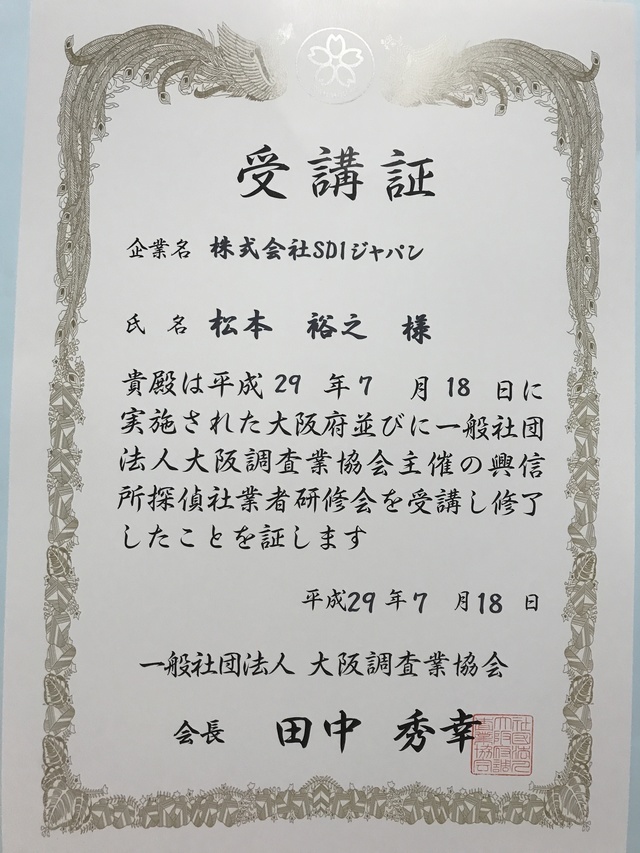 受講証
企業名 株式会社SDIジャパン
氏 名 松本 裕之 様
貴殿は平成 29 年 7 月 18 日に
実施された大阪府並びに一般社団
法人大阪調査業協会主催の興信
所探偵社業者研修会を受講し修了
したことを証します
平成29年7 月18 日
一般社団法人 大阪調査業協会
会長 田中 秀幸